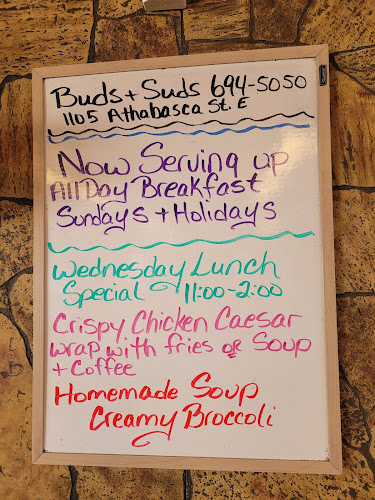 Buds + Suds 694-5050
1105 Athabasca St. E
Now Serving up
All Day Breakfast
Sundays + Holidays
Wednesday Lunch
Special 11:00-2:00
Crispy Chicken Caesar
wrap with fries or Soup
+ Coffee
Homemade Soup
Creamy Broccoli